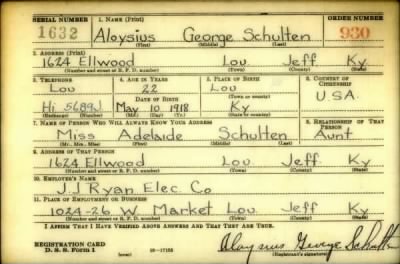 SERIAL NUMBER 1. NAME (Print) ORDER NUMBER
1632 Aloysius George Schulten 930
(First) (Middle) (Last)
2. ADDRESS (Print)
1624 Ellwood Lou Jeff Ky.
(Number and street or R. F. D. number) (Town) (County) (State)
3. TELEPHONE 4. AGE IN YEARS 5. PLACE OF BIRTH 6. COUNTRY OF CITIZENSHIP
Lou 22 Lou
DATE OF BIRTH (Town or county) USA
Hi 5689J May 10 1918 Ky
(Exchange) (Number) (Mo.) (Day) (Yr.) (State or country)
7. NAME OF PERSON WHO WILL ALWAYS KNOW YOUR ADDRESS 8. RELATIONSHIP OF THAT PERSON
Miss Adelaide Schulten Aunt
(Mr., Mrs., Miss) (First) (Middle) (Last)
9. ADDRESS OF THAT PERSON
1624 Ellwood Lou Jeff Ky
(Number and street or R. F. D. number) (Town) (County) (State)
10. EMPLOYER'S NAME
J.J Ryan Elec. Co
11. PLACE OF EMPLOYMENT OR BUSINESS
1024-26 W. Market Lou. Jeff Ky
(Number and street or R. F. D. number) (Town) (County) (State)
I AFFIRM THAT I HAVE VERIFIED ABOVE ANSWERS AND THAT THEY ARE TRUE.
REGISTRATION CARD
D. S. S. Form 1 (over) Aloysius George Schulten
(Registrant's signature)